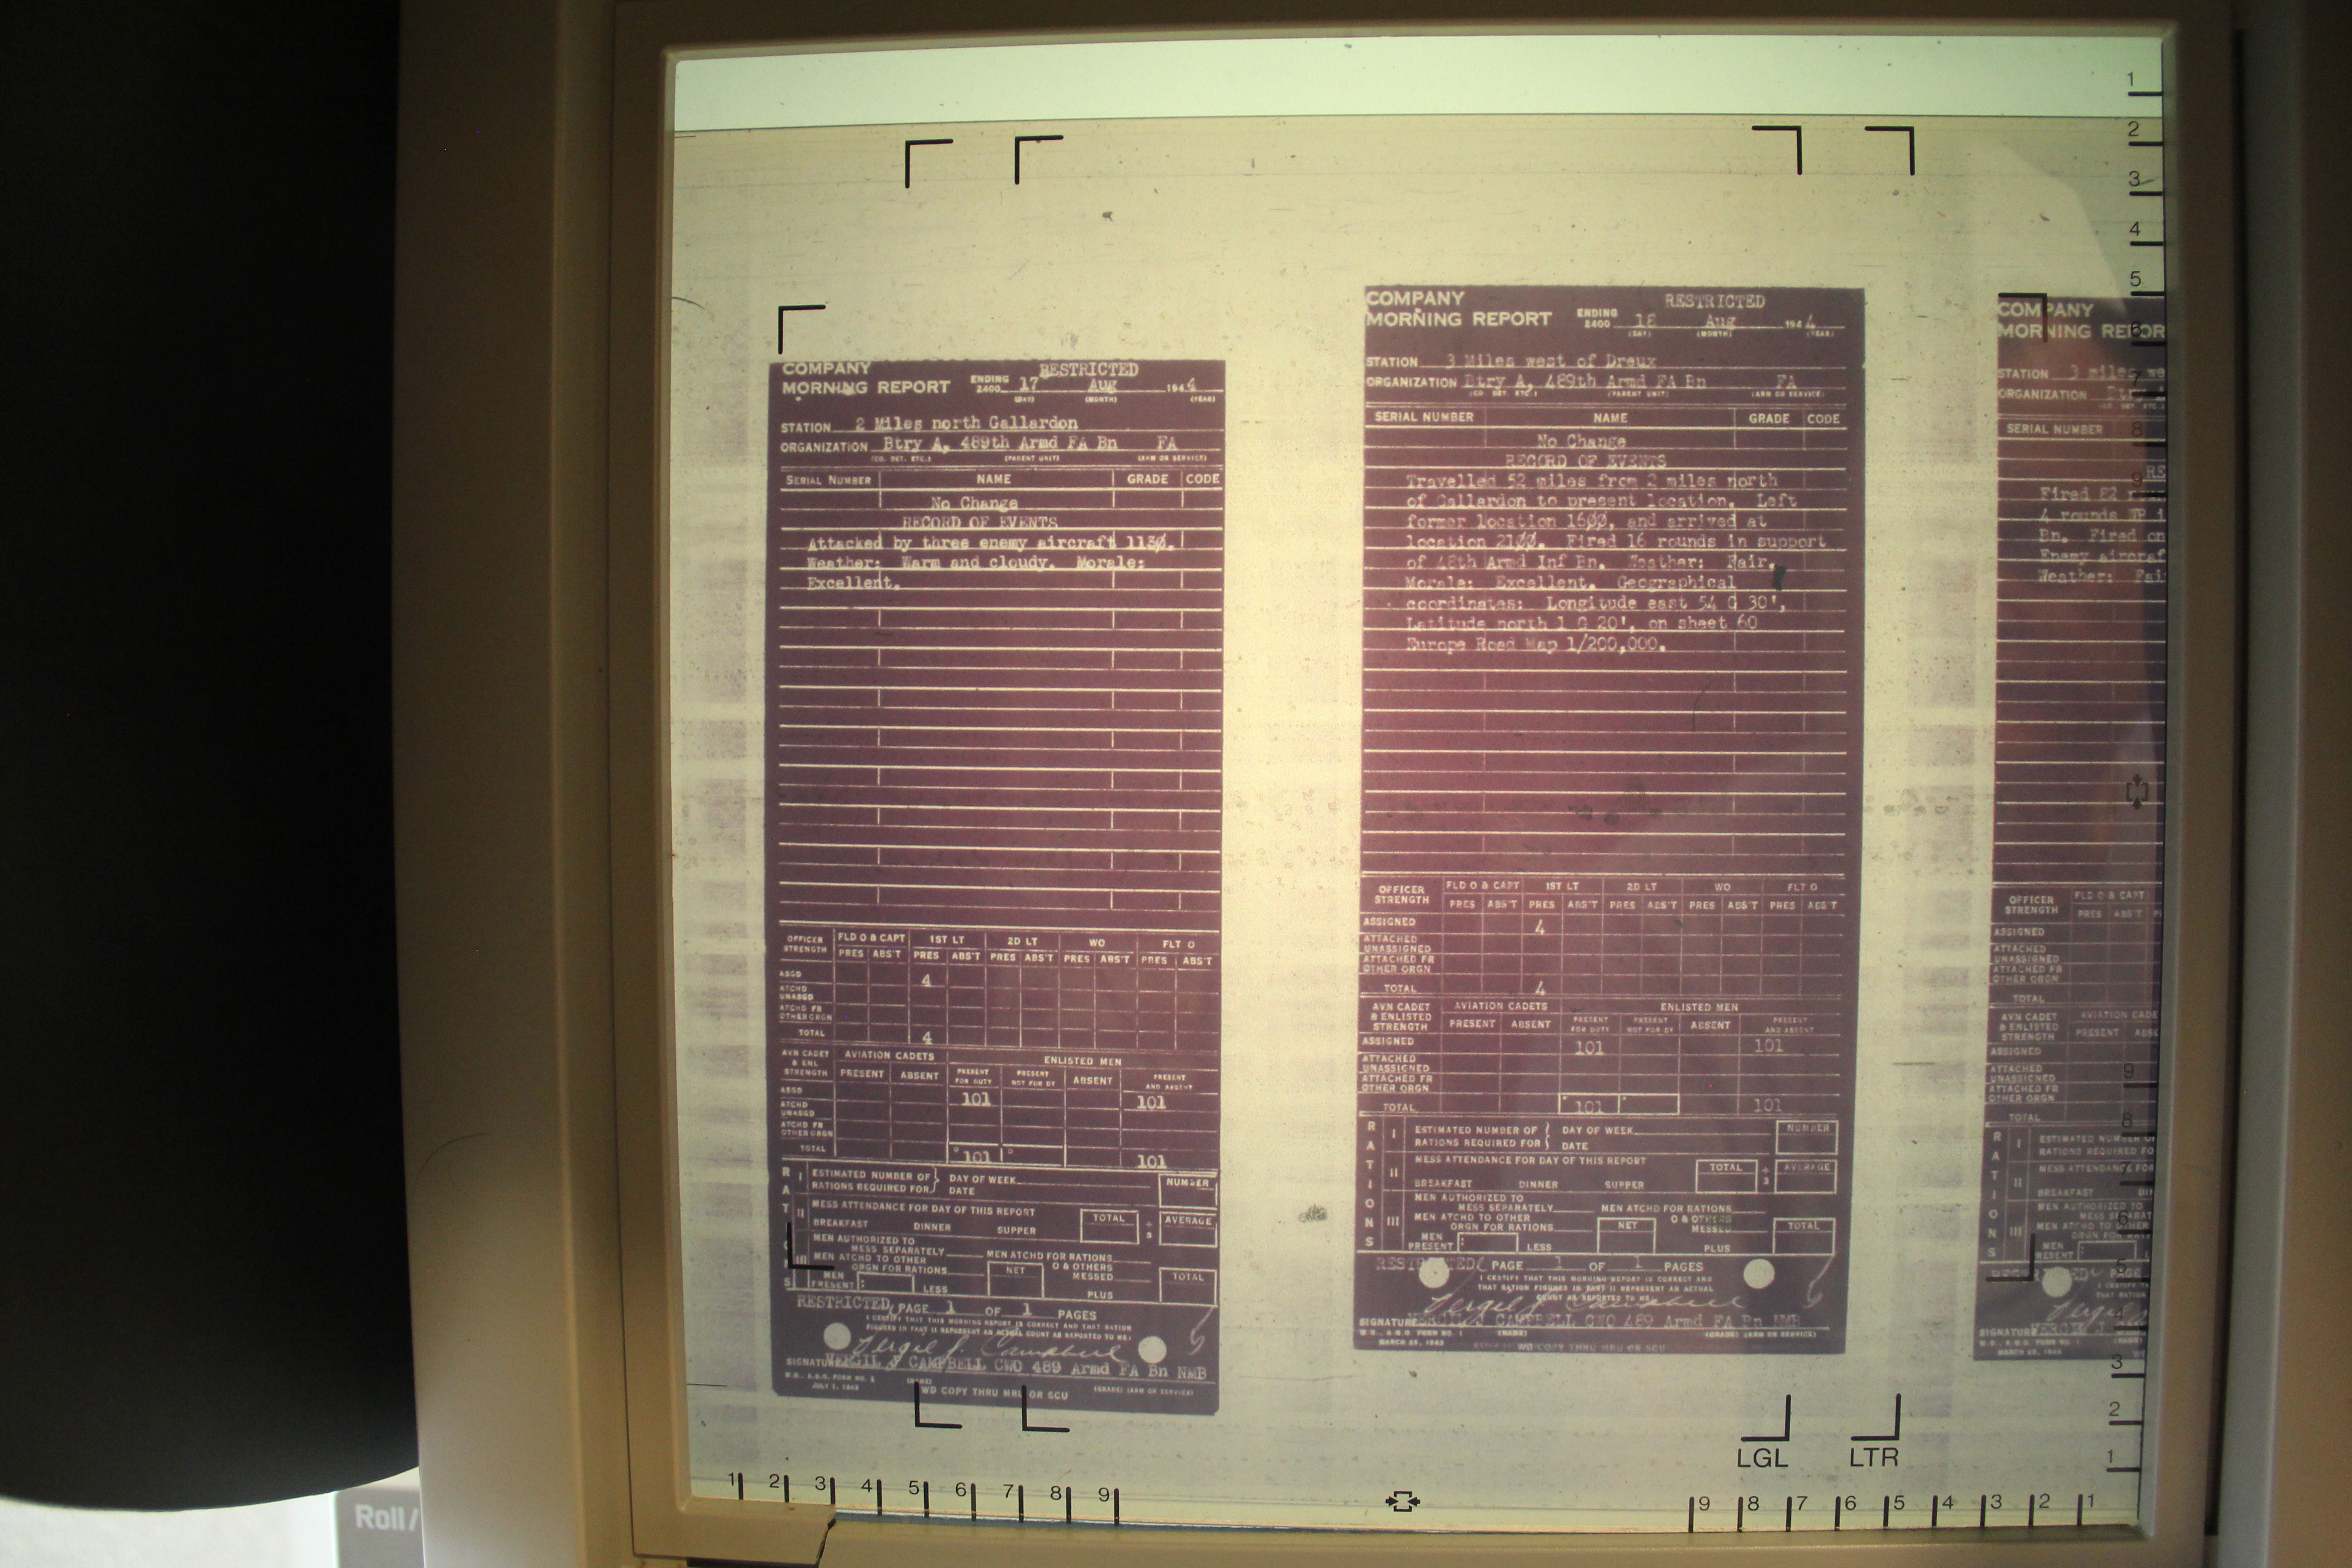 COMPANY RESTRICTED
MORNING REPORT ENDING 2400 17 Aug 1944
(DAY) (MONTH) (YEAR)
STATION 2 Miles north Gallardon
ORGANIZATION Btry A, 489th Armd FA Bn FA
(CO. DET. ETC.) (PARENT UNIT) (ARM OR SERVICE)
SERIAL NUMBER NAME GRADE CODE
No Change
RECORD OF EVENTS
Attacked by three enemy aircraft 1130.
Weather: Warm and cloudy. Morale:
Excellent.
OFFICER STRENGTH FLD O & CAPT 1ST LT 2D LT WO FLT O
PRES ABS'T PRES ABS'T PRES ABS'T PRES ABS'T PRES ABS'T
ASGD 4
ATCHD UNASGD
ATCHD FR OTHER ORGN
TOTAL 4
AVN CADET & ENL STRENGTH AVIATION CADETS ENLISTED MEN
PRESENT ABSENT PRESENT FOR DUTY PRESENT NOT FOR DY ABSENT PRESENT AND ABSENT
ASGD 101 101
ATCHD UNASGD
ATCHD FR OTHER ORGN
TOTAL 101 101
RATIONS
I ESTIMATED NUMBER OF RATIONS REQUIRED FOR DAY OF WEEK DATE NUMBER
II MESS ATTENDANCE FOR DAY OF THIS REPORT
BREAKFAST DINNER SUPPER TOTAL ÷ 3 AVERAGE
III MEN AUTHORIZED TO
MESS SEPARATELY MEN ATCHD FOR RATIONS
MEN ATCHD TO OTHER
ORGN FOR RATIONS NET O & OTHERS MESSED TOTAL
MEN PRESENT: LESS PLUS
RESTRICTED PAGE 1 OF 1 PAGES
I CERTIFY THAT THIS MORNING REPORT IS CORRECT AND THAT RATION
FIGURES IN PART II REPRESENT AN ACTUAL COUNT AS REPORTED TO ME.
Vergil J. Campbell
SIGNATURE VERGIL J CAMPBELL CWO 489 Armd FA Bn NMB
W.D., A.G.O. FORM NO. 1 (NAME) (GRADE) (ARM OR SERVICE)
JULY 1, 1943
WD COPY THRU MRU OR SCU
COMPANY RESTRICTED
MORNING REPORT ENDING 2400 18 Aug 1944
(DAY) (MONTH) (YEAR)
STATION 3 Miles west of Dreux
ORGANIZATION Btry A, 489th Armd FA Bn FA
(CO. DET. ETC.) (PARENT UNIT) (ARM OR SERVICE)
SERIAL NUMBER NAME GRADE CODE
No Change
RECORD OF EVENTS
Travelled 52 miles from 2 miles north
of Gallardon to present location. Left
former location 1600, and arrived at
location 2100. Fired 16 rounds in support
of 48th Armd Inf Bn. Weather: Fair.
Morale: Excellent. Geographical
coordinates: Longitude east 54 G 30',
Latitude north 1 G 20', on sheet 60
Europe Road Map 1/200,000.
OFFICER STRENGTH FLD O & CAPT 1ST LT 2D LT WO FLT O
PRES ABS'T PRES ABS'T PRES ABS'T PRES ABS'T PRES ABS'T
ASSIGNED 4
ATTACHED UNASSIGNED
ATTACHED FR OTHER ORGN
TOTAL 4
AVN CADET & ENLISTED STRENGTH AVIATION CADETS ENLISTED MEN
PRESENT ABSENT PRESENT FOR DUTY PRESENT NOT FOR DY ABSENT PRESENT AND ABSENT
ASSIGNED 101 101
ATTACHED UNASSIGNED
ATTACHED FR OTHER ORGN
TOTAL 101 101
RATIONS
I ESTIMATED NUMBER OF RATIONS REQUIRED FOR DAY OF WEEK DATE NUMBER
II MESS ATTENDANCE FOR DAY OF THIS REPORT
BREAKFAST DINNER SUPPER TOTAL ÷ 3 AVERAGE
III MEN AUTHORIZED TO
MESS SEPARATELY MEN ATCHD FOR RATIONS
MEN ATCHD TO OTHER
ORGN FOR RATIONS NET O & OTHERS MESSED TOTAL
MEN PRESENT: LESS PLUS
RESTRICTED PAGE 1 OF 1 PAGES
I CERTIFY THAT THIS MORNING REPORT IS CORRECT AND
THAT RATION FIGURES IN PART II REPRESENT AN ACTUAL
COUNT AS REPORTED TO ME.
Vergil J Campbell
SIGNATURE VERGIL J. CAMPBELL CWO 489 Armd FA Bn NMB
W.D., A.G.O. FORM NO. 1 (NAME) (GRADE) (ARM OR SERVICE)
MARCH 23, 1943
WD COPY THRU MRU OR SCU
COMPANY
MORNING REPOR
STATION 3 miles we
ORGANIZATION Btry
SERIAL NUMBER
RE
Fired 82
4 rounds WP i
Bn. Fired on
Enemy aircraf
Weather: Fai
OFFICER STRENGTH FLD O & CAPT
PRES ABS'T
ASSIGNED
ATTACHED UNASSIGNED
ATTACHED FR OTHER ORGN
TOTAL
AVN CADET & ENLISTED STRENGTH AVIATION CADE
PRESENT ABSE
ASSIGNED
ATTACHED UNASSIGNED
ATTACHED FR OTHER ORGN
TOTAL
RATIONS
I ESTIMATED NUMBER O
RATIONS REQUIRED FO
II MESS ATTENDANCE FOR
BREAKFAST DIN
III MEN AUTHORIZED TO
MESS SEPARAT
MEN ATCHD TO OTHER
ORGN FOR RAT
MEN PRESENT:
RESTRICTED PAGE
Vergil
SIGNATURE VERGIL J
MARCH 23, 1943
1
2
3
4
5
6
7
8
9
9
8
6
5
3
2
1
LGL LTR
1 2 3 4 5 6 7 8 9
9 8 7 6 5 4 3 2 1
Roll/